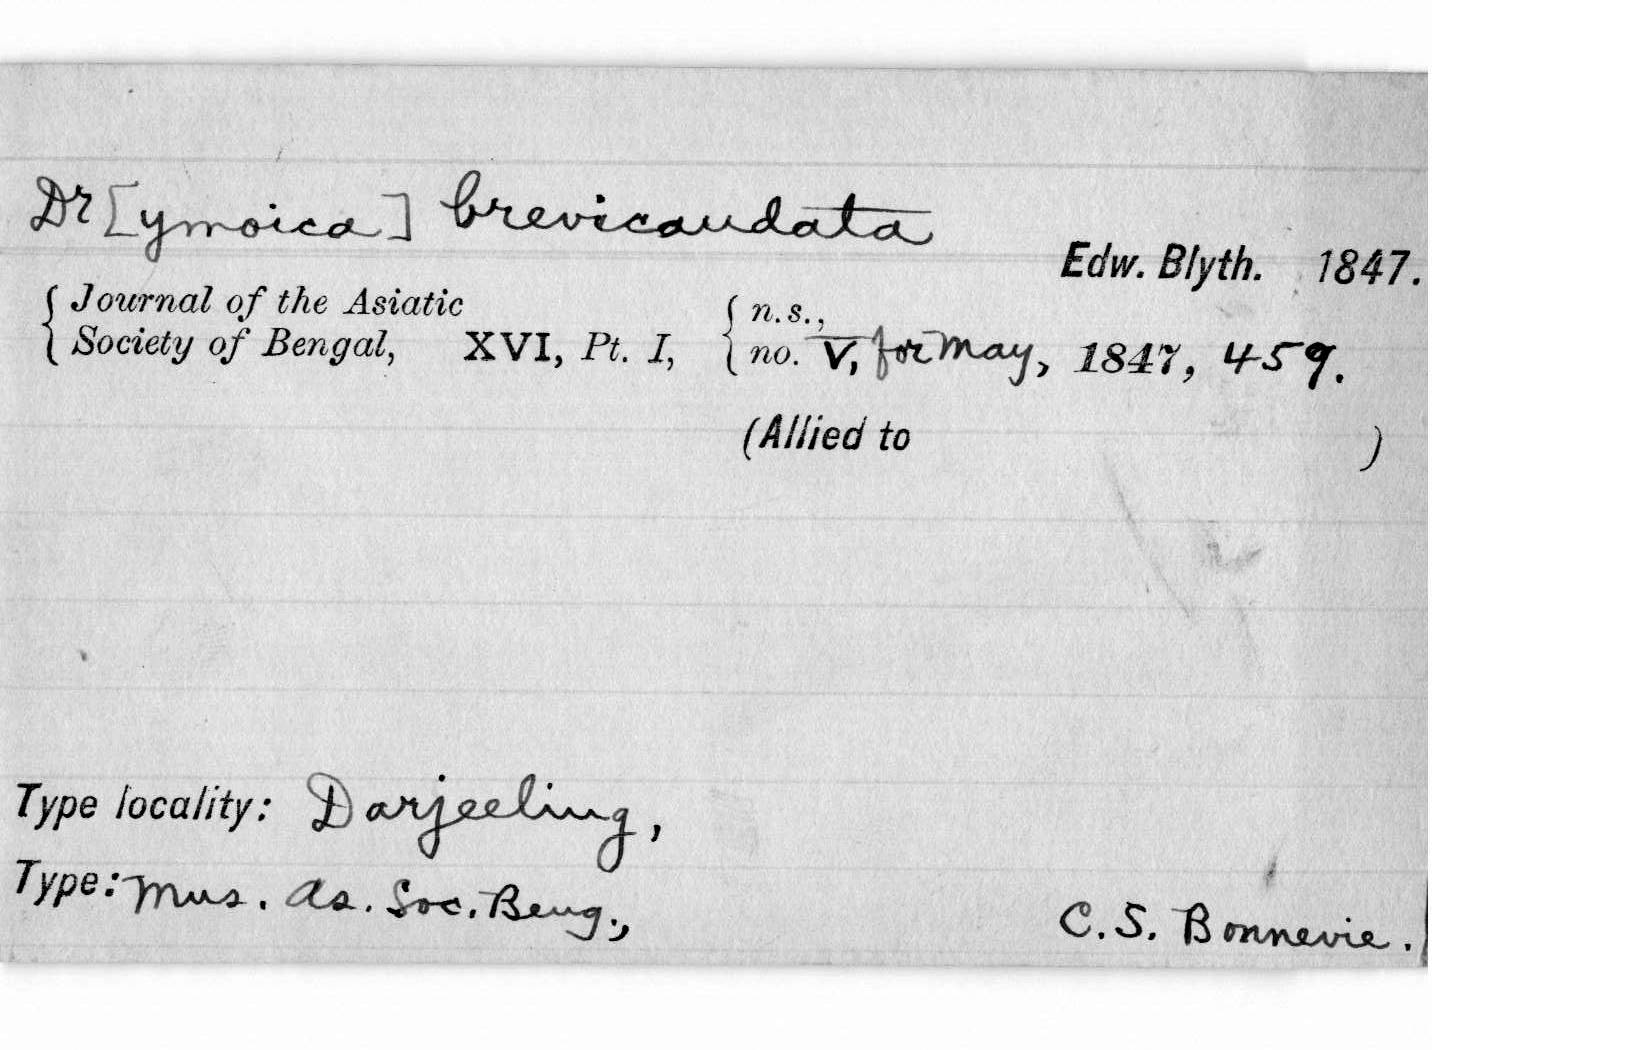 Dr[ymoica] brevicaudata
Edw. Blyth. 1847.
{ Journal of the Asiatic { n.s.,
{ Society of Bengal, XVI, Pt. I, { no. V, for May, 1847, 459.
(Allied to )
Type locality: Darjeeling,
Type: Mus. As. Soc. Beng.,
C. S. Bonnevie.